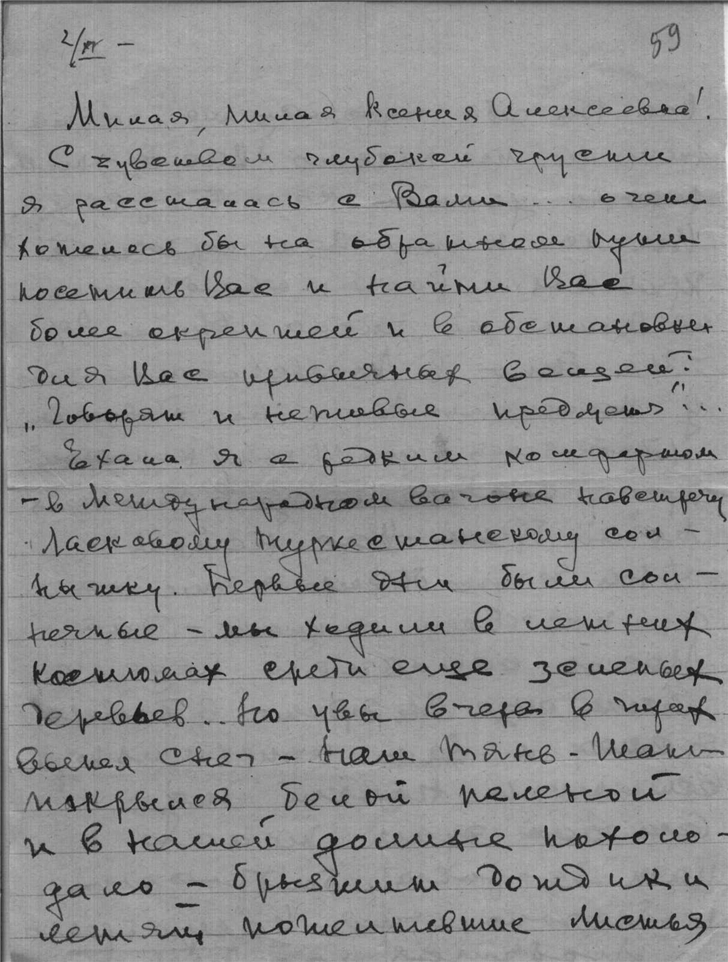 2/XI –
59
Милая, милая Ксения Алексеевна!
С чувством глубокой грусти
я рассталась с Вами... очень
хотелось бы на обратном пути
посетить Вас и найти Вас
более окрепшей и в обстановке
для Вас привычных вещей:
„Говорят и неживые предметы"...
Ехала я с редким комфортом
– в международном вагоне навстречу
ласковому туркестанскому сол-
нышку. Первые дни были сол-
нечные – мы ходили в летних
костюмах среди еще зеленых
деревьев.. Но увы вчера в горах
выпал снег – наш Тянь-Шань
покрылся белой пеленой
и в нашей долине похоло-
дало – брызжит дождик и
летят пожелтевшие листья